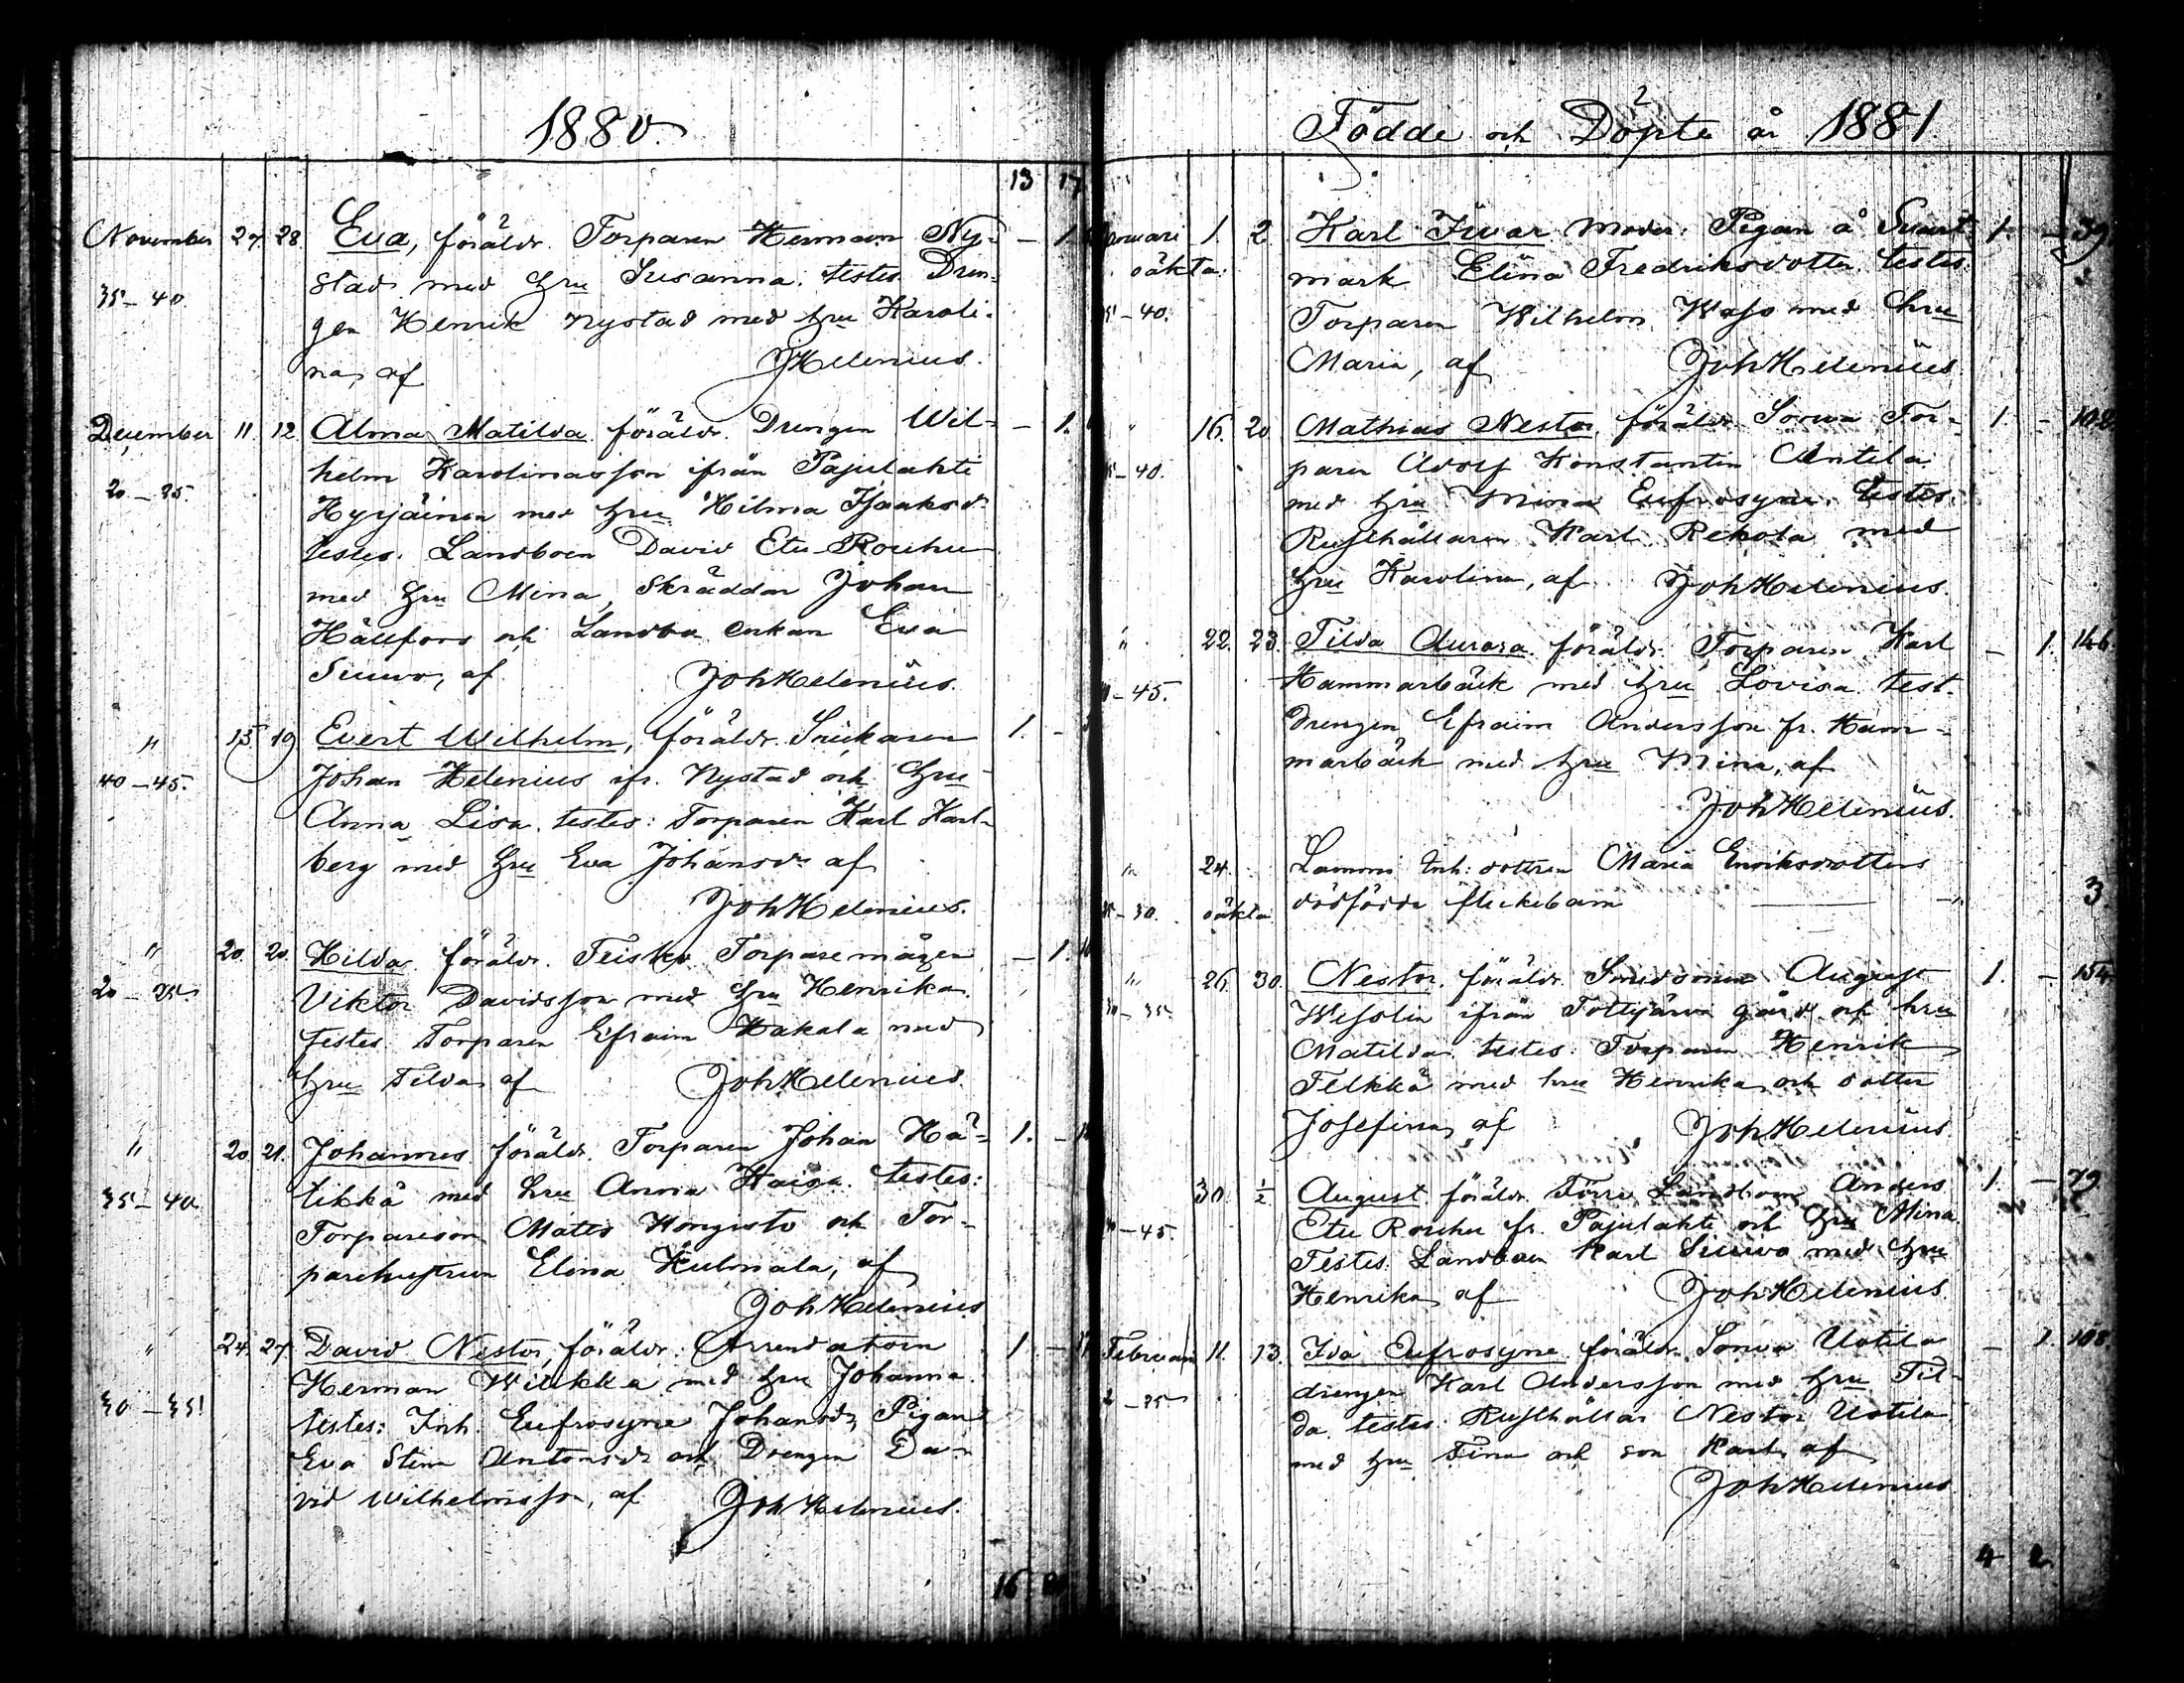 1880.
13 17
November 27. 28. Eva, föräldr. Torparen Herman Ny- — 1.
stad med hru Susanna. testes. Dren-
35 – 40.
gen Henrik Nystad med hru Karoli-
na, af JHelenius.
December 11. 12. Alma Matilda. föräldr. Drengen Wil- — 1.
helm Karolinasson ifrån Pajulahti
20 – 25.
Hyrjäinen med hru Hilma Isaaksd.
testes. Landboen David Etu-Rouhu
med hru Mina, Skräddar Johan
Hällfors och Landbo enkan Eva
Siuvo, af JohHelenius.
" 15. 19. Evert Wilhelm, föräldr. Snickaren 1. –
40 – 45.
Johan Helenius ifr. Nystad och hru
Anna Lisa. testes: Torparen Karl Karl-
berg med hru Eva Johansdr af
JohHelenius.
" 20. 20. Hilda. föräldr. Teisko Torparemågen — 1.
20 – 25.
Viktor Davidsson med hru Henrika.
testes Torparen Efraim Hakala med
hru Tilda, af JohHelenius.
" 20. 21. Johannes. föräldr. Torparen Johan Hä- 1. –
35 – 40.
tikkä med hru Anna Kaisa. testes:
Torpareson Matts Hongisto och Tor-
parehustrun Elina Kulmala, af
JohHelenius
" 24. 27. David Nestor, föräldr: Arrendatorn 1. –
Herman Wilkkla med hru Johanna.
30 – 35.
testes: Inh. Eufrosyne Johansdr, Pigan
Eva Stina Antonsdr och Drengen Da-
vid Wilhelmsson, af JohHelenius.
16
Födde och Döpte år 1881.
Januari 1. 2 Karl Iivar. Moder: Pigan å Svart- 1. – 39
oäkta.
mark Elina Fredriksdotter. testes.
– 40.
Torparen Wilhelm Waso med hru
Maria, af JohHelenius.
" 16. 20. Mathias Nestor, föräldr. Sorva Tor- 1. – 102
– 40.
paren Adolf Konstantin Antila
med hru Mina Eufrosyne. testes.
Rusthållaren Karl Rekola med
hru Karolina, af JohHelenius.
" 22. 23. Tilda Aurora. föräldr. Torparen Karl – 1. 146
– 45.
Hammarbäck med hru Lovisa. test.
Drengen Efraim Andersson fr. Ham-
marbäck med hru Mina, af
JohHelenius.
" 24. Lammi Inh: dottren Maria Enriksdotters
– 30. oäkta. dödfödda flickebarn 3.
" 26. 30. Nestor. föräldr. Smedsonen August 1. – 154
30 – 35
Wesslin ifrån Tottijärvi gård och hru
Matilda. testes. Torparen Henrik
Telkkä med hru Henrika och dotter
Josefina, af JohHelenius.
30. ½ August föräldr. Förre Landboen Anders 1. – 79
– 45.
Etu Rouhu fr. Pajulahti och hru Mina.
Testes. Landboen Karl Siuvo med hru
Henrika, af JohHelenius
Februari 11. 13. Ida Eufrosyne. föräldr. Sorva Uotila – 1. 108.
– 25
drengen Karl Andersson med hru Til-
da. testes. Rusthållar Nestor Uotila
med hru Fina och son Karl, af
JohHelenius
4 2.